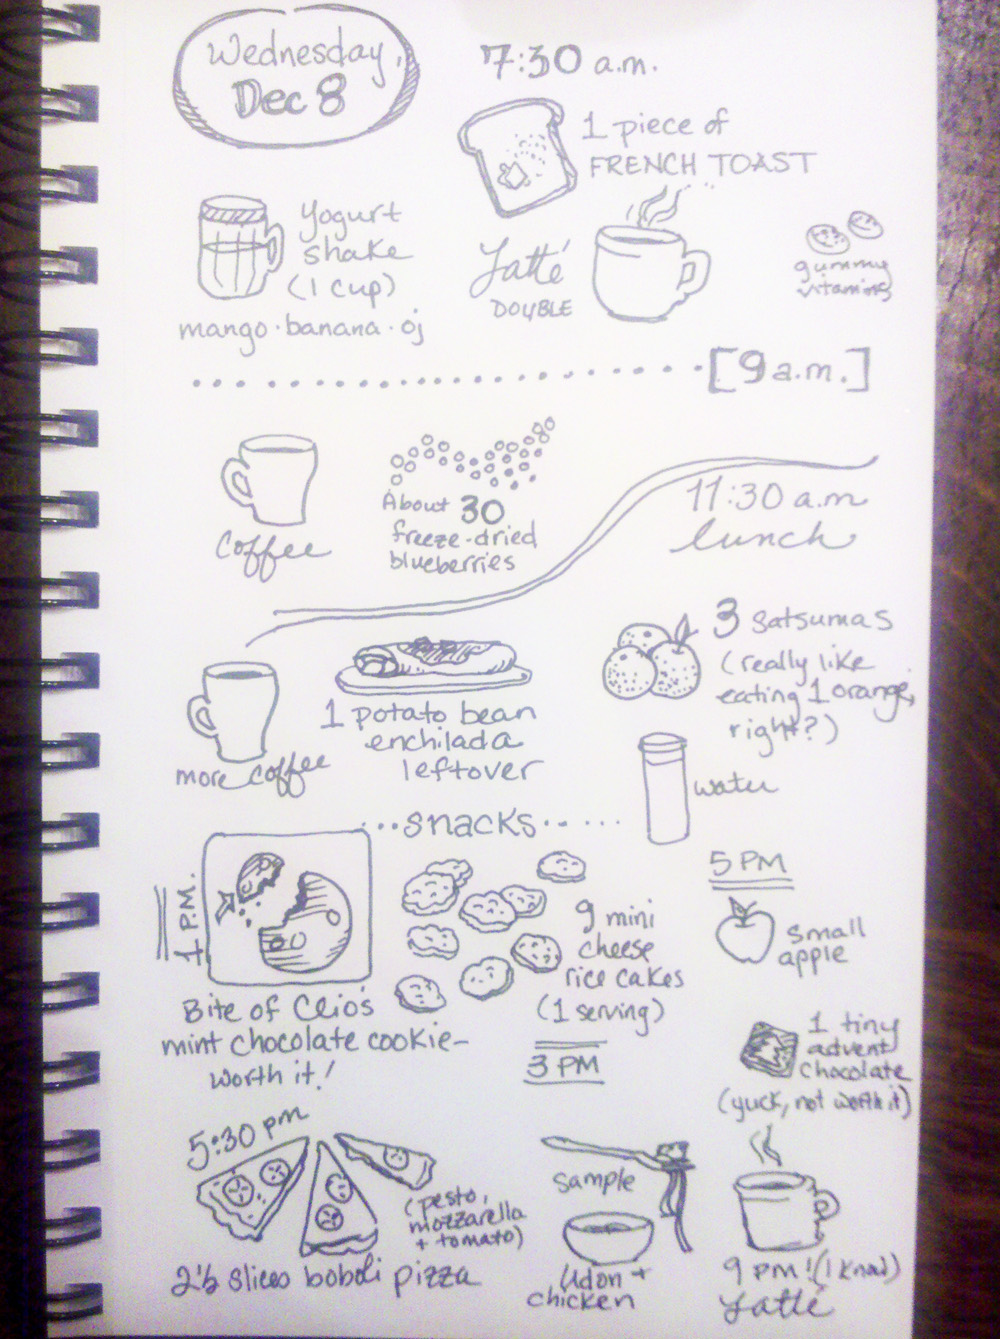 Wednesday,
Dec 8
7:30 a.m.
1 piece of
FRENCH TOAST
Yogurt
shake
(1 cup)
mango · banana · oj
Latté
DOUBLE
gummy
vitamins
[9 a.m.]
Coffee
About 30
freeze-dried
blueberries
11:30 a.m
lunch
more coffee
1 potato bean
enchilada
leftover
3 satsumas
(really like
eating 1 orange,
right?)
water
...snacks.....
1 P.M.
Bite of Clio's
mint chocolate cookie-
worth it!
9 mini
cheese
rice cakes
(1 serving)
3 PM
5 PM
small
apple
1 tiny
advent
chocolate
(yuck, not worth it)
5:30 pm
(pesto,
mozzarella
+ tomato)
2½ slices boboli pizza
Sample
Udon +
chicken
9 pm! (I know)
Latté